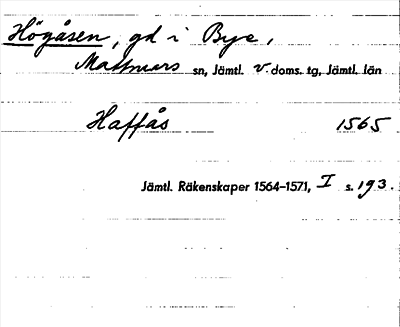 Högåsen, gd i Bye,
Mattmars sn, Jämtl. v. doms. tg, Jämtl. län
Haffås 1565
Jämtl. Räkenskaper 1564–1571, I s. 193.